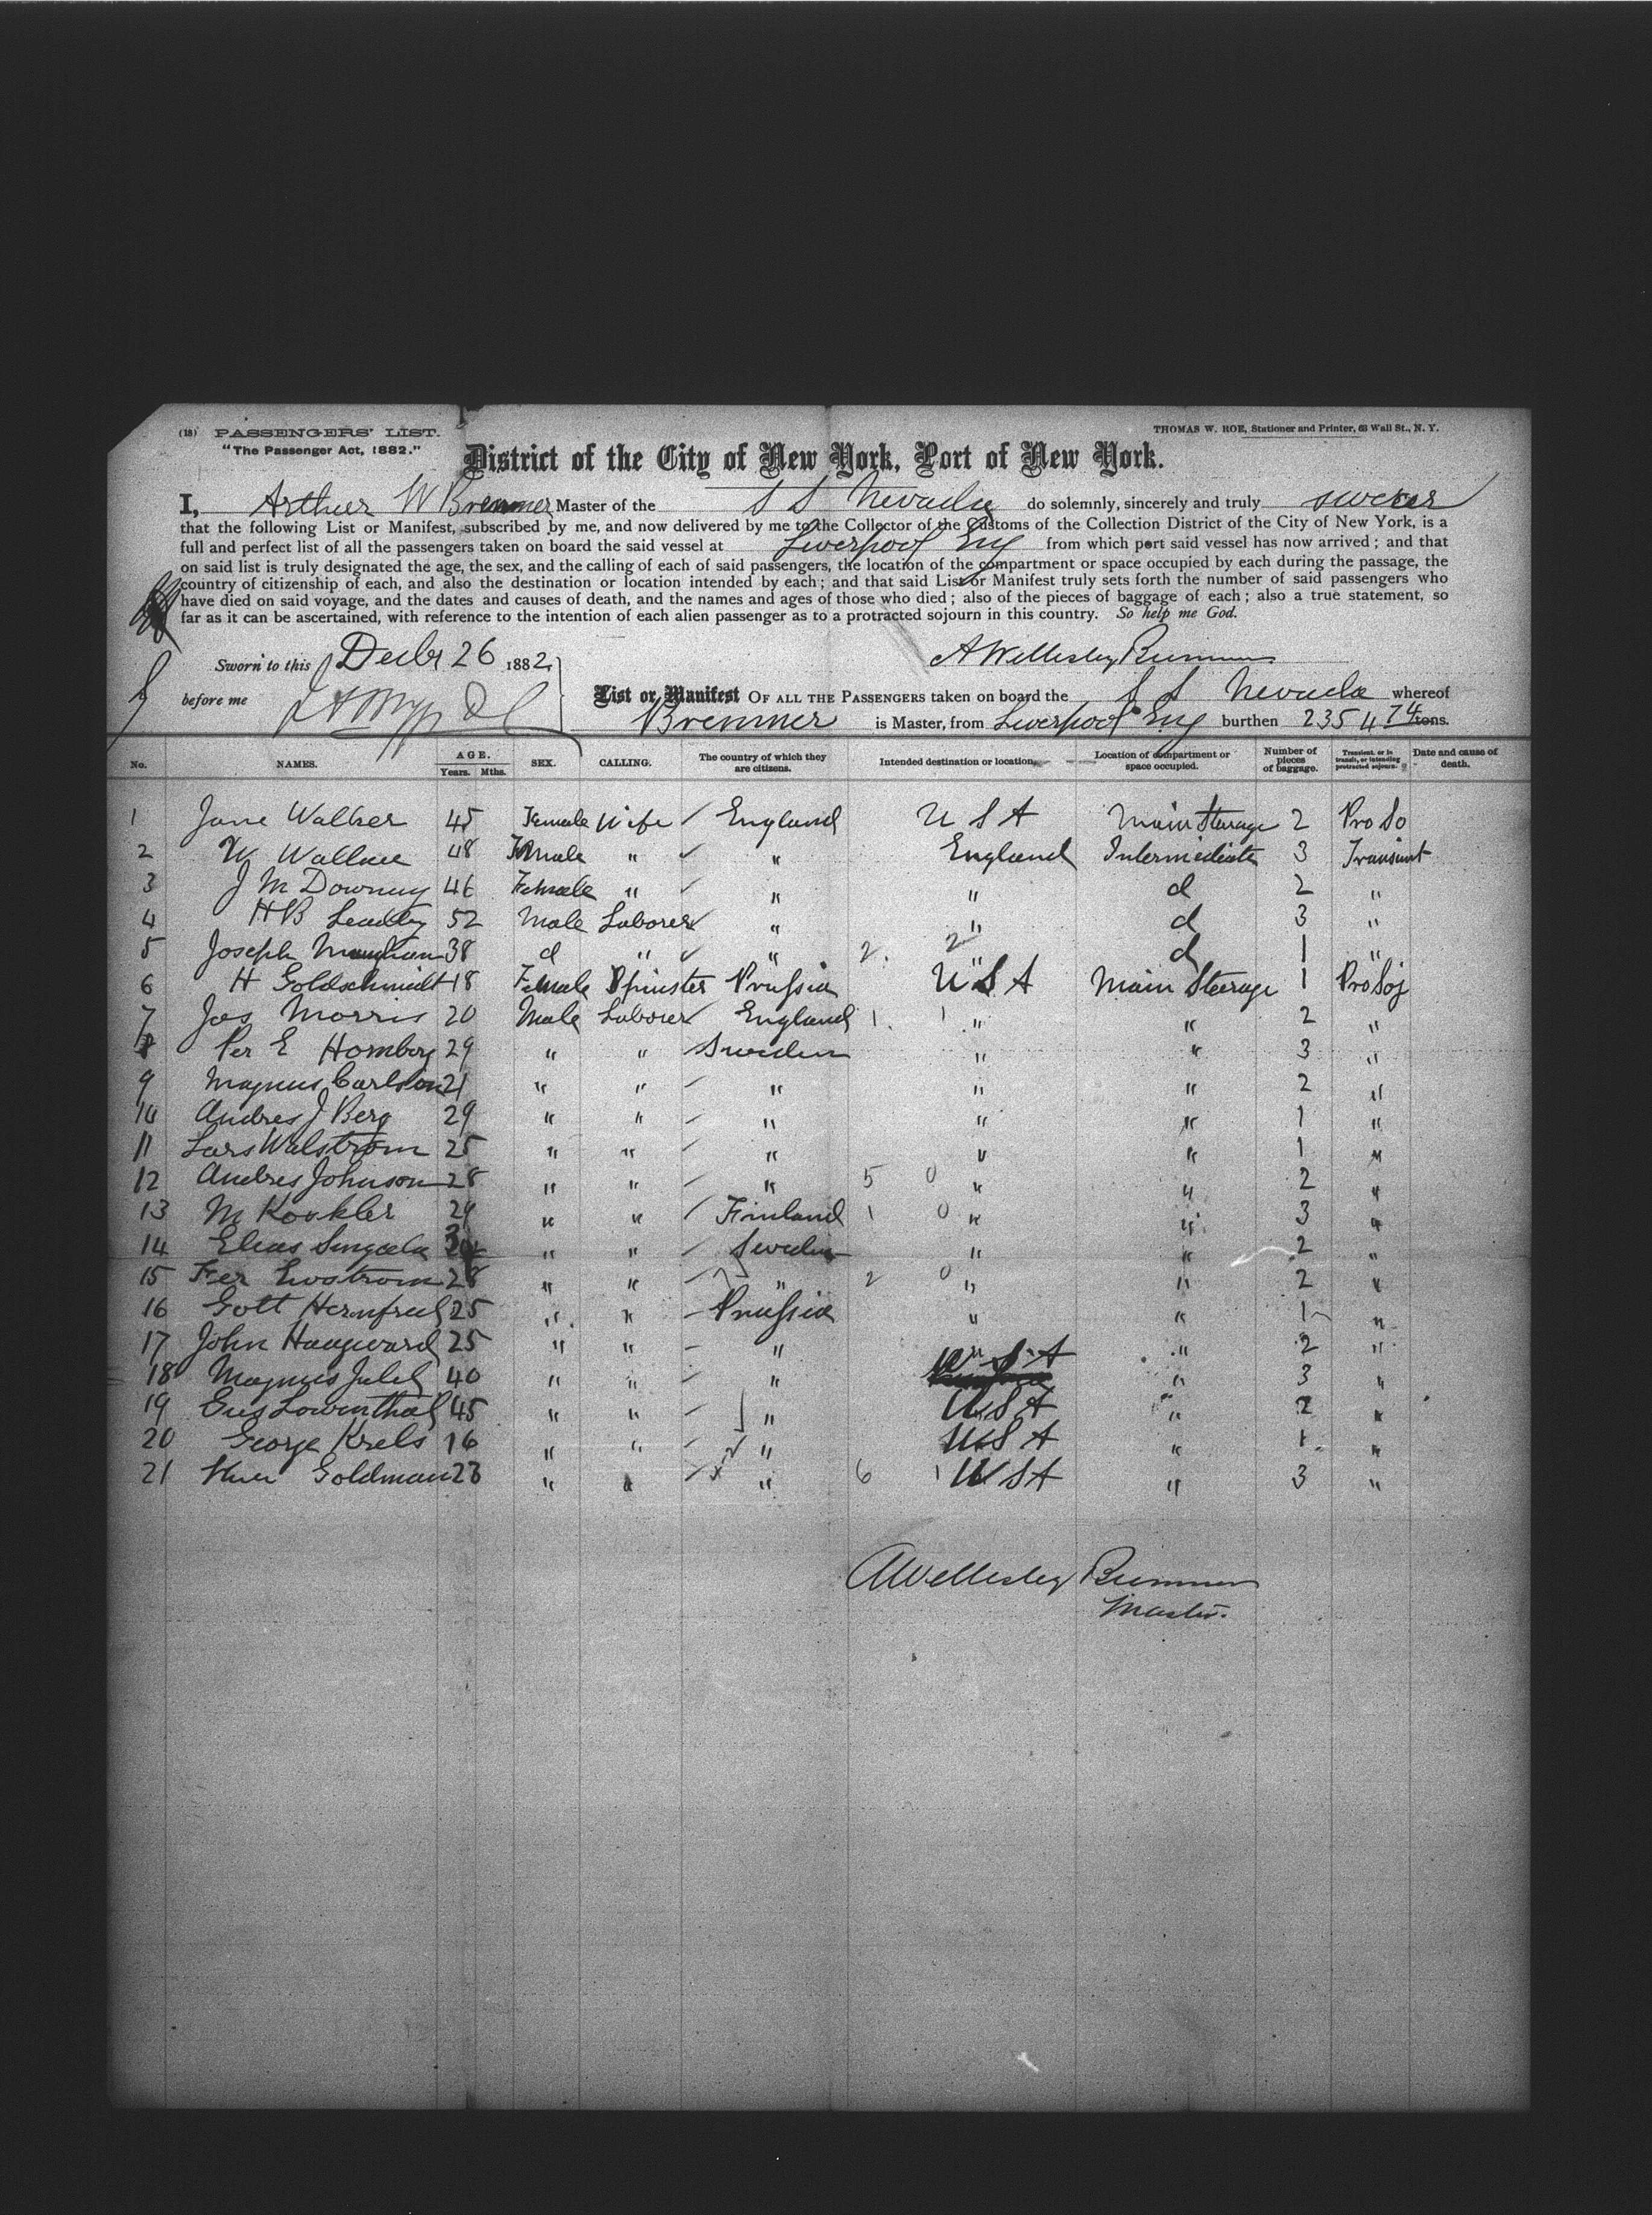 (18) PASSENGERS' LIST.
"The Passenger Act, 1882."
THOMAS W. ROE, Stationer and Printer, 63 Wall St., N. Y.
District of the City of New York, Port of New York.
I, Arthur W Bremner Master of the S S Nevada do solemnly, sincerely and truly swear
that the following List or Manifest, subscribed by me, and now delivered by me to the Collector of the Customs of the Collection District of the City of New York, is a
full and perfect list of all the passengers taken on board the said vessel at Liverpool Eng from which port said vessel has now arrived; and that
on said list is truly designated the age, the sex, and the calling of each of said passengers, the location of the compartment or space occupied by each during the passage, the
country of citizenship of each, and also the destination or location intended by each; and that said List or Manifest truly sets forth the number of said passengers who
have died on said voyage, and the dates and causes of death, and the names and ages of those who died; also of the pieces of baggage of each; also a true statement, so
far as it can be ascertained, with reference to the intention of each alien passenger as to a protracted sojourn in this country. So help me God.
Sworn to this Decbr 26 1882
A Wellesley Bremner
before me
List or Manifest OF ALL THE PASSENGERS taken on board the S S Nevada whereof
Bremner is Master, from Liverpool Eng burthen 2354 74 tons.
No. NAMES. AGE. Years. Mths. SEX. CALLING. The country of which they are citizens. Intended destination or location. Location of compartment or space occupied. Number of pieces of baggage. Transient, or in transit, or intending protracted sojourn. Date and cause of death.
1 Jane Walker 45 Female Wife England U S A Main Steerage 2 Pro So
2 W Wallace 48 Female " " England Intermediate 3 Transient
3 J M Downey 46 Female " " " d 2 "
4 H B 52 Male Laborer " " d 3 "
5 Joseph 38 d " " 2. 2 " d 1 "
6 H Goldschmidt 18 Female Spinster Prussia U S A Main Steerage 1 Pro Soj
7 Jas Morris 20 Male Laborer England 1. 1 " " 2 "
8 Per E Homberg 29 " " Sweden " " 3 "
9 Magnus Carlson 21 " " " " " 2 "
10 Andres J Berg 29 " " " " " 1 "
11 Lars Walstrom 25 " " " " " 1 "
12 Andres Johnson 28 " " " 5 0 " " 2 "
13 M Koukler 29 " " Finland 1 0 " " 3 "
14 Elias " " Sweden " " 2 "
15 28 " " " 2 0 " " 2 "
16 Gott 25 " " Prussia " " 1 "
17 John Haugward 25 " " " " " 2 "
18 Magnus 40 " " " U S A " 3 "
19 Gus Lowenthal 45 " " " U S A " 2 "
20 George Krels 16 " " " U S A " 1 "
21 Goldman 23 " " " 6 1 U S A " 3 "
A Wellesley Bremner
Master.